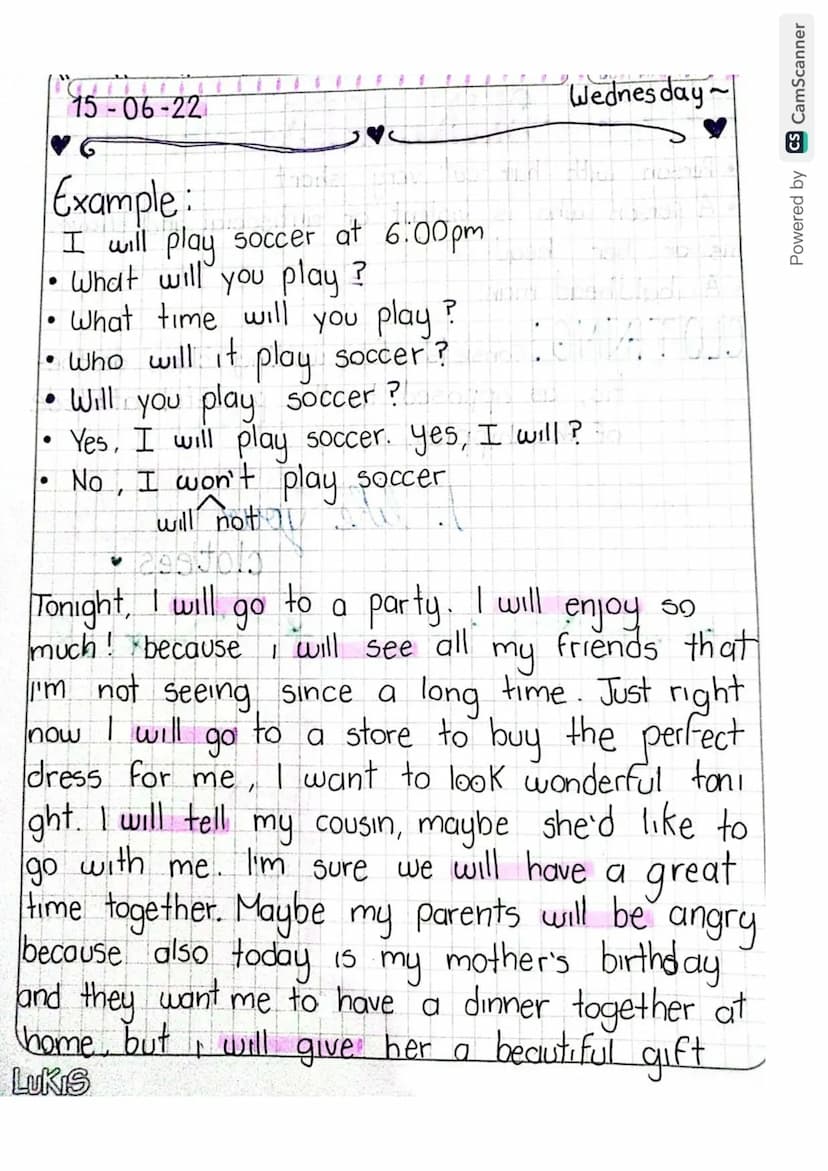 15-06-22 Wednesday~
Example:
I will play soccer at 6:00pm
• What will you play?
• What time will you play?
• Who will it play soccer?
• Will you play soccer?
• Yes, I will play soccer. yes, I will?
• No, I won't play soccer
will not
clotees
Tonight, I will go to a party. I will enjoy so
much! because i will see all my friends that
I'm not seeing since a long time. Just right
now I will go to a store to buy the perfect
dress for me, I want to look wonderful toni
ght. I will tell my cousin, maybe she'd like to
go with me. I'm sure we will have a great
time together. Maybe my parents will be angry
because also today is my mother's birthday
and they want me to have a dinner together at
home, but i will give her a beautiful gift
LUKIS
Powered by CS CamScanner